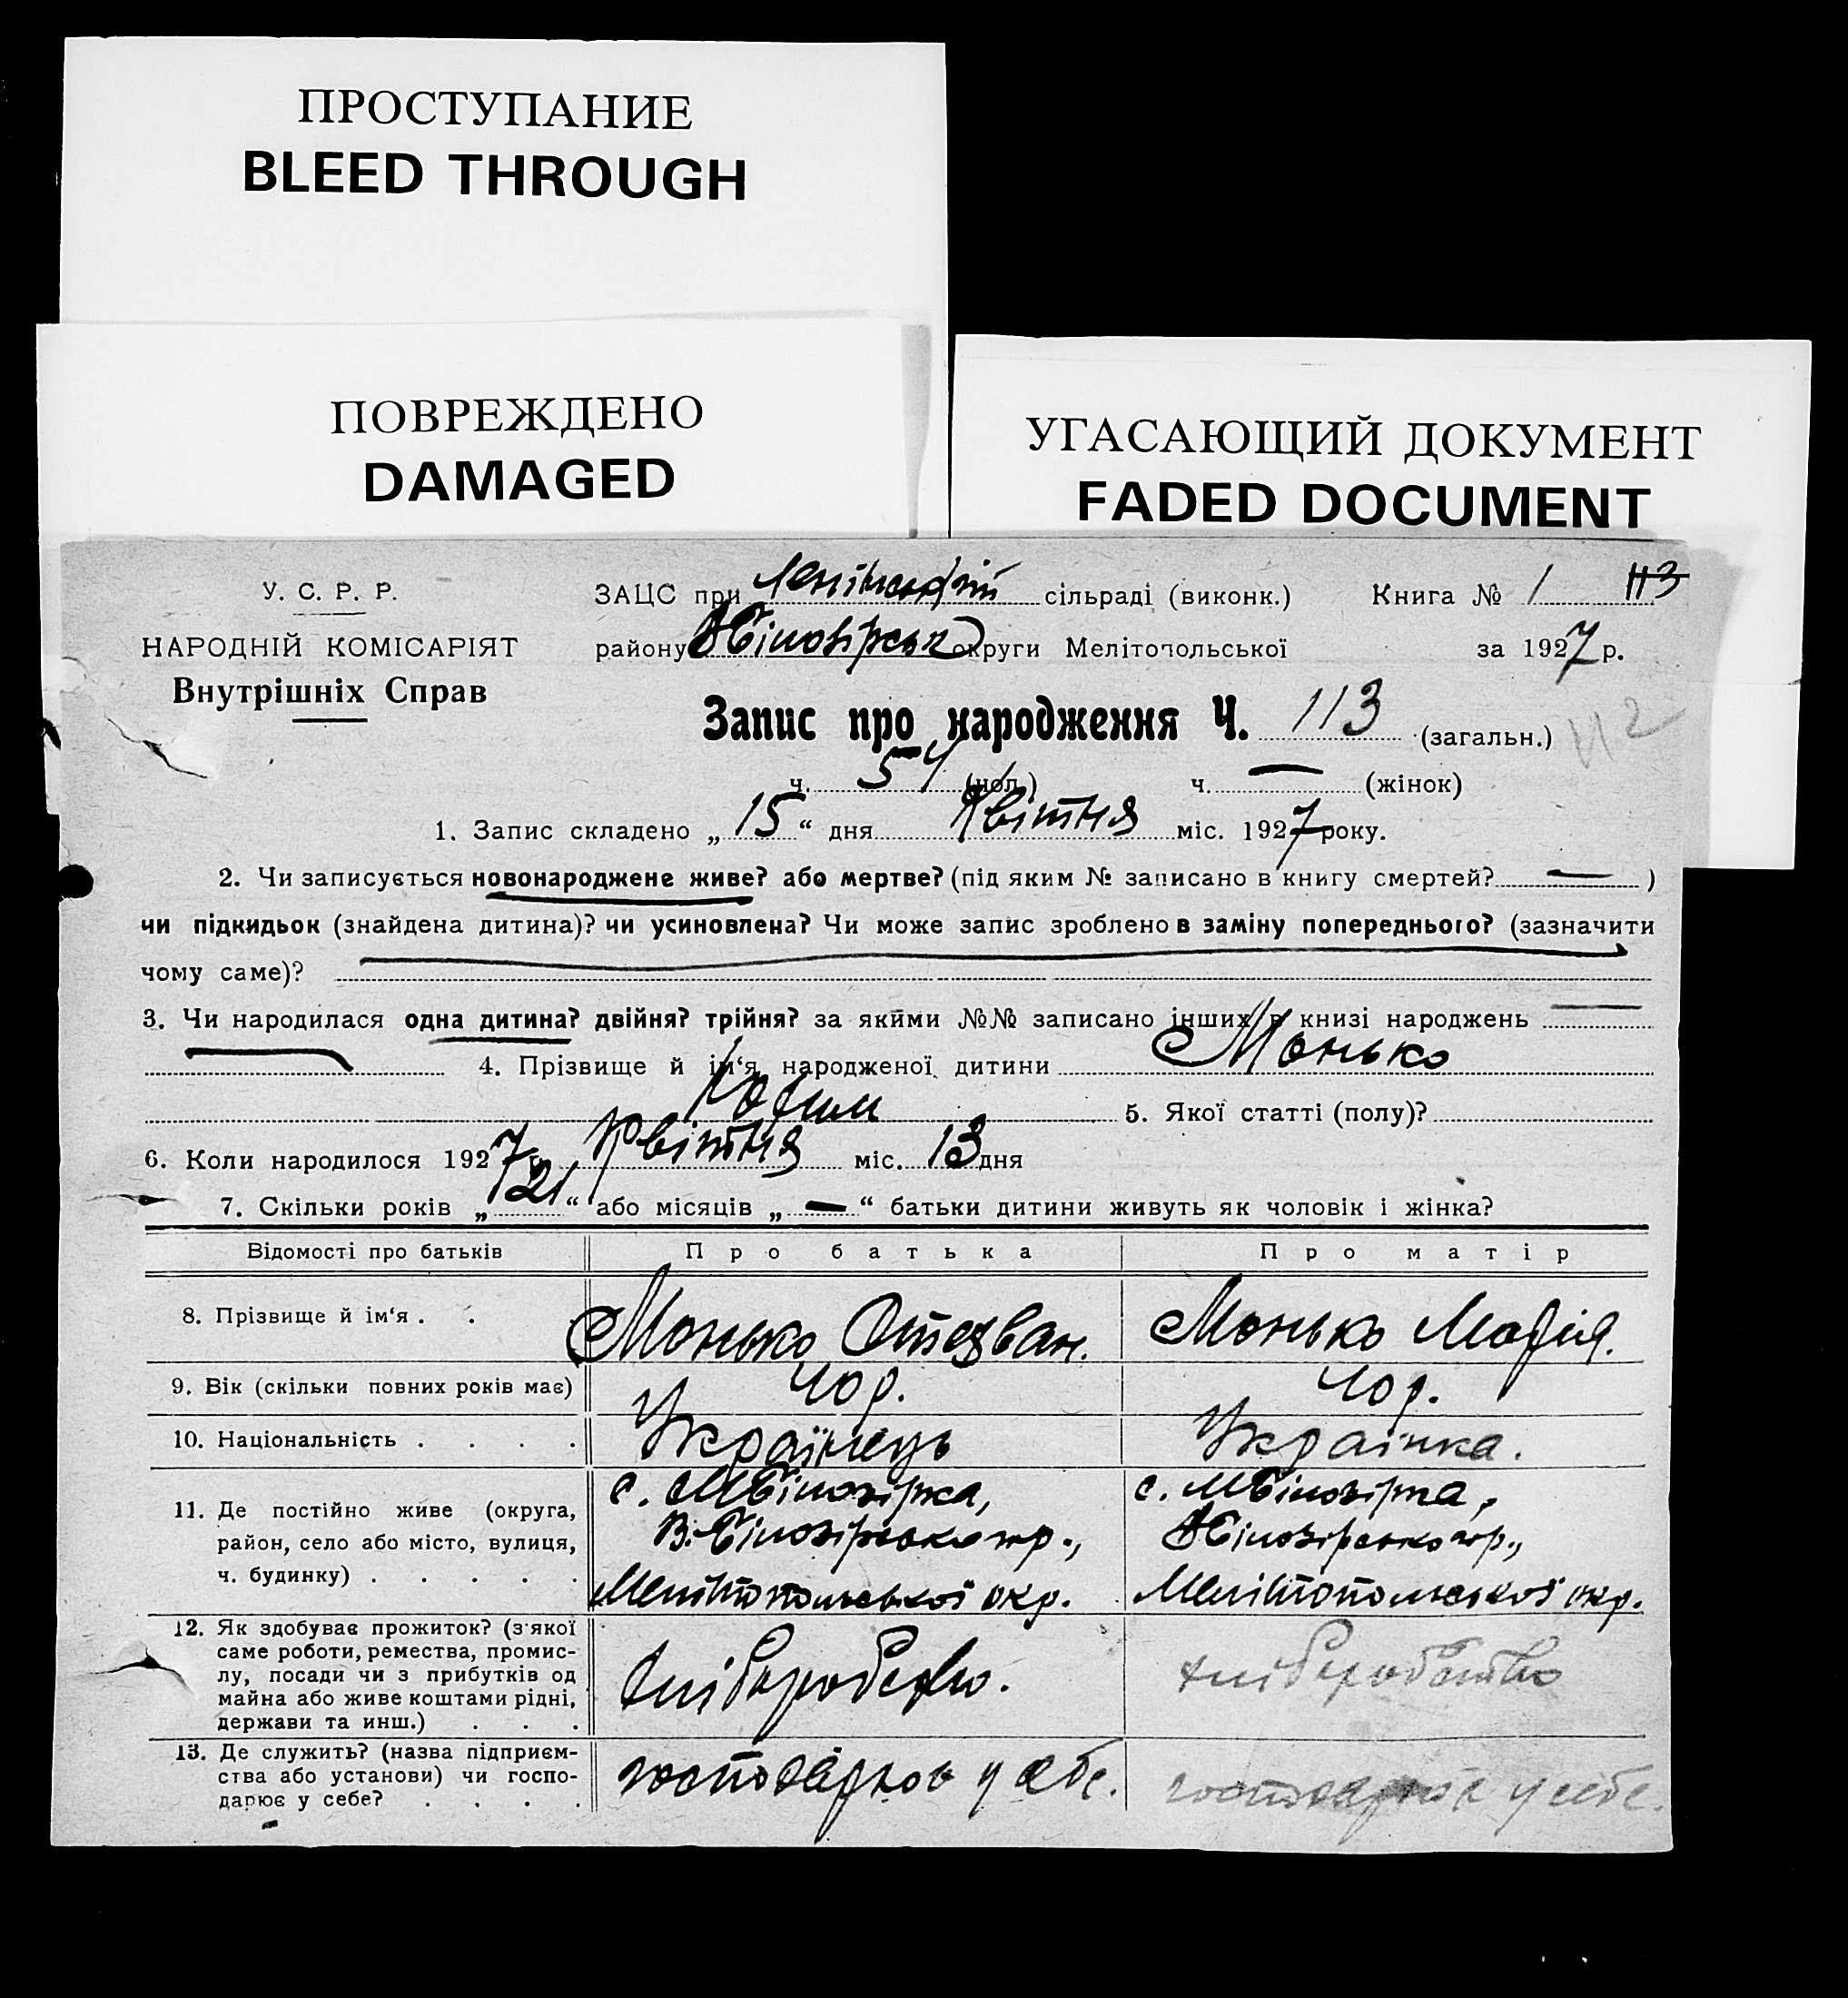 ПРОСТУПАНИЕ
BLEED THROUGH
ПОВРЕЖДЕНО
DAMAGED
УГАСАЮЩИЙ ДОКУМЕНТ
FADED DOCUMENT
У. С. Р. Р.
НАРОДНІЙ КОМІСАРІЯТ
Внутрішніх Справ
ЗАЦС при Ленінській сільраді (виконк.) Книга № 1 113
району округи Мелітопольської за 1927 р.
Запис про народження Ч. 113 (загальн.) 112
ч. 54 (чол.) ч. — (жінок)
1. Запис складено „15“ дня Квітня міс. 1927 року.
2. Чи записується новонароджене живе? або мертве? (під яким № записано в книгу смертей? — )
чи підкидьок (знайдена дитина)? чи усиновлена? Чи може запис зроблено в заміну попереднього? (зазначити
чому саме)?
3. Чи народилася одна дитина? двійня? трійня? за якими №№ записано інших в книзі народжень —
4. Прізвище й ім‘я народженої дитини Монько
5. Якої статті (полу)?
6. Коли народилося 1927 р. Квітня міс. 13 дня
7. Скільки років „21“ або місяців „—“ батьки дитини живуть як чоловік і жінка?
Відомості про батьків Про батька Про матір
8. Прізвище й ім‘я . . Монько Монько Марія.
9. Вік (скільки повних років має) 40 р. 40 р.
10. Національність . . . . Українець Українка.
11. Де постійно живе (округа,
район, село або місто, вулиця,
ч. будинку) . . . . .
с. М Білозірка,
В.-Білозірського р.,
Мелітопольської окр.
с. М Білозірка,
Білозірського р.,
Мелітопольської окр.
12. Як здобуває прожиток? (з якої
саме роботи, ремества, промис-
лу, посади чи з прибутків од
майна або живе коштами рідні,
держави та инш.) . . .
хліборобство
13. Де служить? (назва підприєм-
ства або установи) чи госпо-
дарює у себе? . . . .
у себе.
у себе.